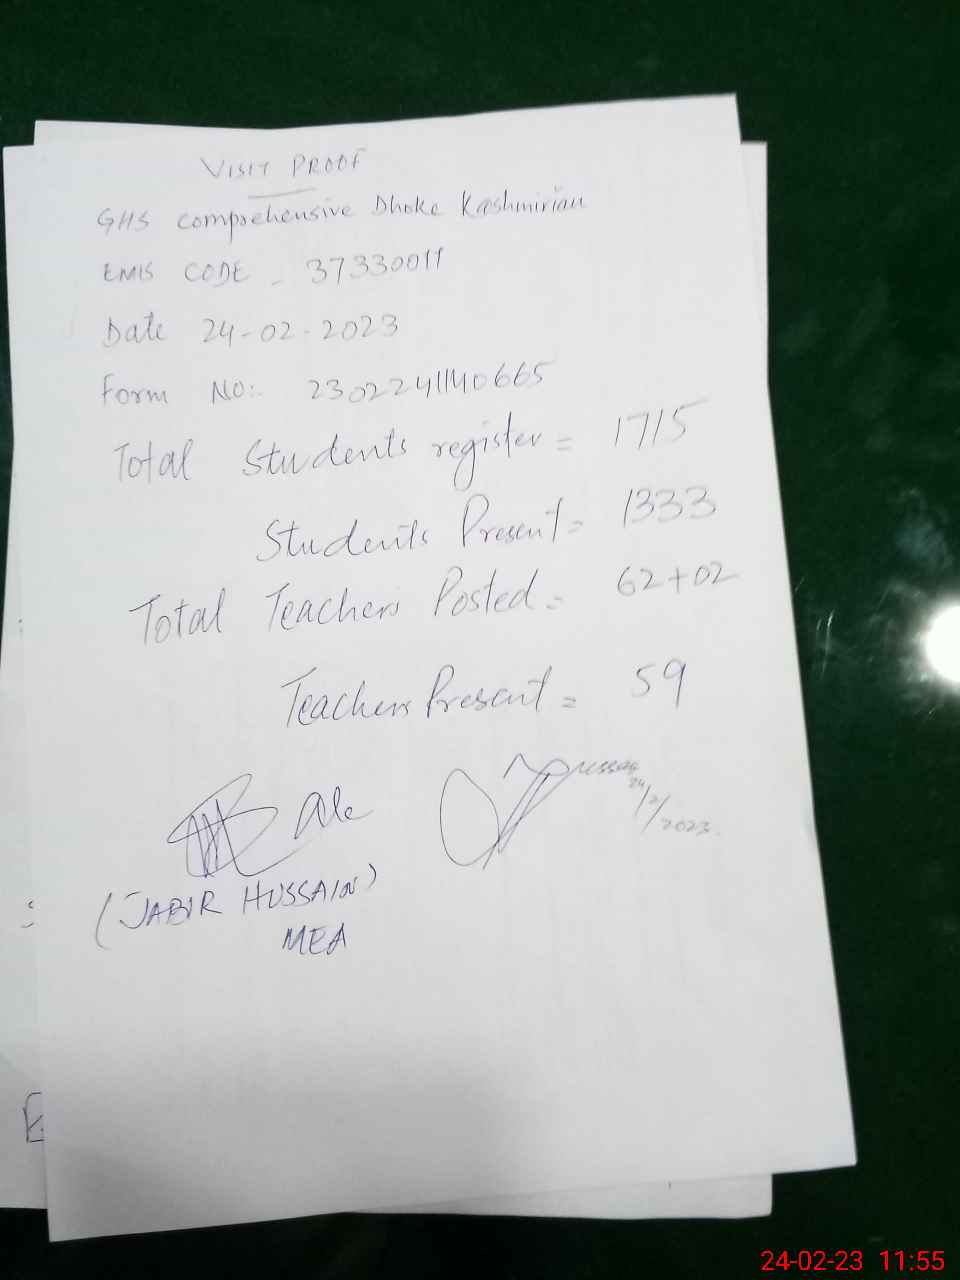 VISIT PROOF
GHS comprehensive Dhoke Kashmirian
EMIS CODE - 37330011
Date 24-02-2023
Form NO:. 2302241140665
Total Students register = 1715
Students Present = 1333
Total Teachers Posted = 62+02
Teachers Present = 59
24/2/2023
(JABIR HUSSAIN)
MEA
24-02-23 11:55